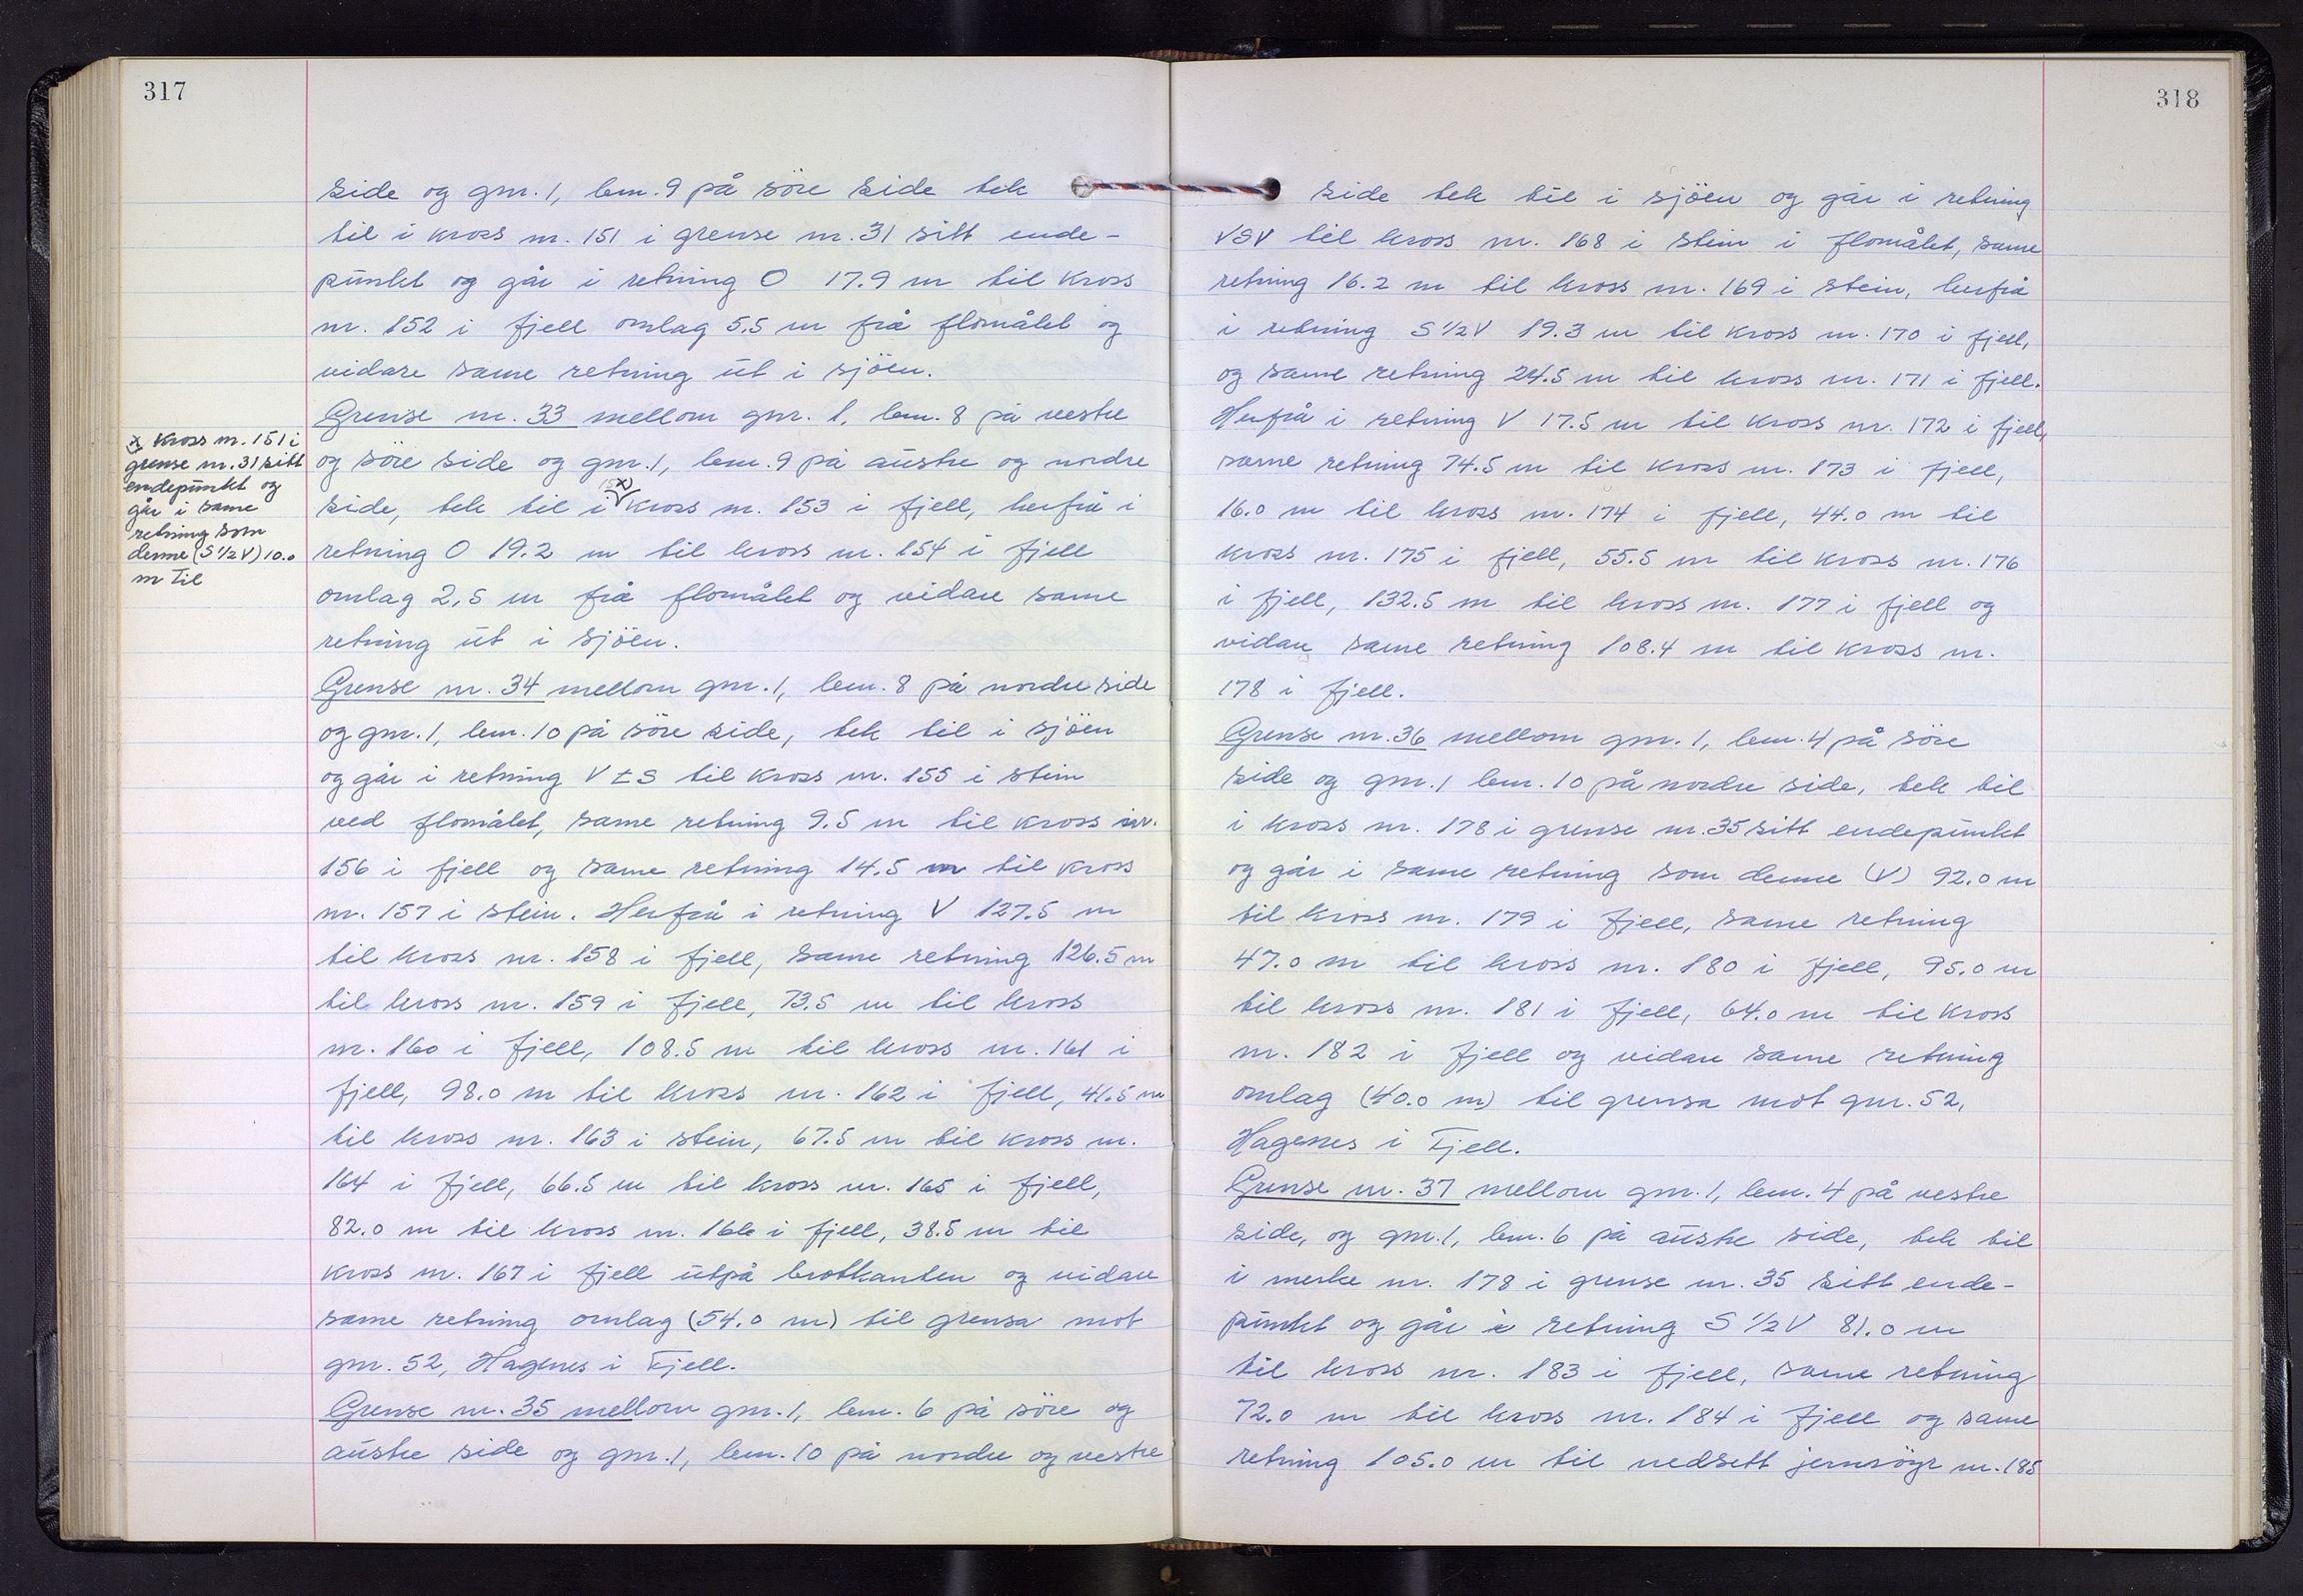 317
side og gnr. 1, lem. 9 på söre side tek
til i kross nr. 151 i grense nr. 31 sitt ende-
punkt og går i retning O 17.9 m til kross
nr. 152 i fjell omlag 5,5 m frå flomålet og
vidare same retning ut i sjöen.
Grense nr. 33 mellom gnr. 1, lem. 8 på vestre
og söre side og gnr. 1, lem. 9 på austre og nordre
side, tek til i x) kross nr. 153 i fjell, herfrå i
retning O 19.2 m til kross nr. 154 i fjell
omlag 2,5 m frå flomålet og vidare same
retning ut i sjöen.
x) Kross nr. 151 i
grense nr. 31 sitt
endepunkt og
går i same
retning som
denne (S 1/2 V) 10.0
m til
Grense nr. 34 mellom gnr. 1, lem. 8 på nordre side
og gnr. 1, lem. 10 på söre side, tek til i sjöen
og går i retning V t S til kross nr. 155 i stein
ved flomålet, same retning 9.5 m til kross nr.
156 i fjell og same retning 14.5 m til kross
nr. 157 i stein. Herfrå i retning V 127.5 m
til kross nr. 158 i fjell, same retning 126.5 m
til kross nr. 159 i fjell, 73.5 m til kross
nr. 160 i fjell, 108.5 m til kross nr. 161 i
fjell, 98.0 m til kross nr. 162 i fjell, 41.5 m
til kross nr. 163 i stein, 67.5 m til kross nr.
164 i fjell, 66.5 m til kross nr. 165 i fjell,
82.0 m til kross nr. 166 i fjell, 38.5 m til
kross nr. 167 i fjell utpå brotkanten og vidare
same retning omlag (54.0 m) til grensa mot
gnr. 52, Hagenes i Fjell.
Grense nr. 35 mellom gnr. 1, lem. 6 på söre og
austre side og gnr. 1, lem. 10 på nordre og vestre
318
side tek til i sjöen og går i retning
VSV til kross nr. 168 i stein i flomålet, same
retning 16.2 m til kross nr. 169 i stein, herfrå
i retning S 1/2 V 19.3 m til kross nr. 170 i fjell,
og same retning 24.5 m til kross nr. 171 i fjell.
Herfrå i retning V 17.5 m til kross nr. 172 i fjell,
same retning 74.5 m til kross nr. 173 i fjell,
16.0 m til kross nr. 174 i fjell, 44.0 m til
kross nr. 175 i fjell, 55.5 m til kross nr. 176
i fjell, 132.5 m til kross nr. 177 i fjell og
vidare same retning 108.4 m til kross nr.
178 i fjell.
Grense nr. 36 mellom gnr. 1, lem. 4 på söre
side og gnr. 1 lem. 10 på nordre side, tek til
i kross nr. 178 i grense nr. 35 sitt endepunkt
og går i same retning som denne (V) 92.0 m
til kross nr. 179 i fjell, same retning
47.0 m til kross nr. 180 i fjell, 95.0 m
til kross nr. 181 i fjell, 64.0 m til kross
nr. 182 i fjell og vidare same retning
omlag (40.0 m) til grensa mot gnr. 52,
Hagenes i Fjell.
Grense nr. 37 mellom gnr. 1, lem. 4 på vestre
side, og gnr. 1, lem. 6 på austre side, tek til
i merke nr. 178 i grense nr. 35 sitt ende-
punkt og går i retning S 1/2 V 81.0 m
til kross nr. 183 i fjell, same retning
72.0 m til kross nr. 184 i fjell og same
retning 105.0 m til nedsett jernsöyr nr. 185